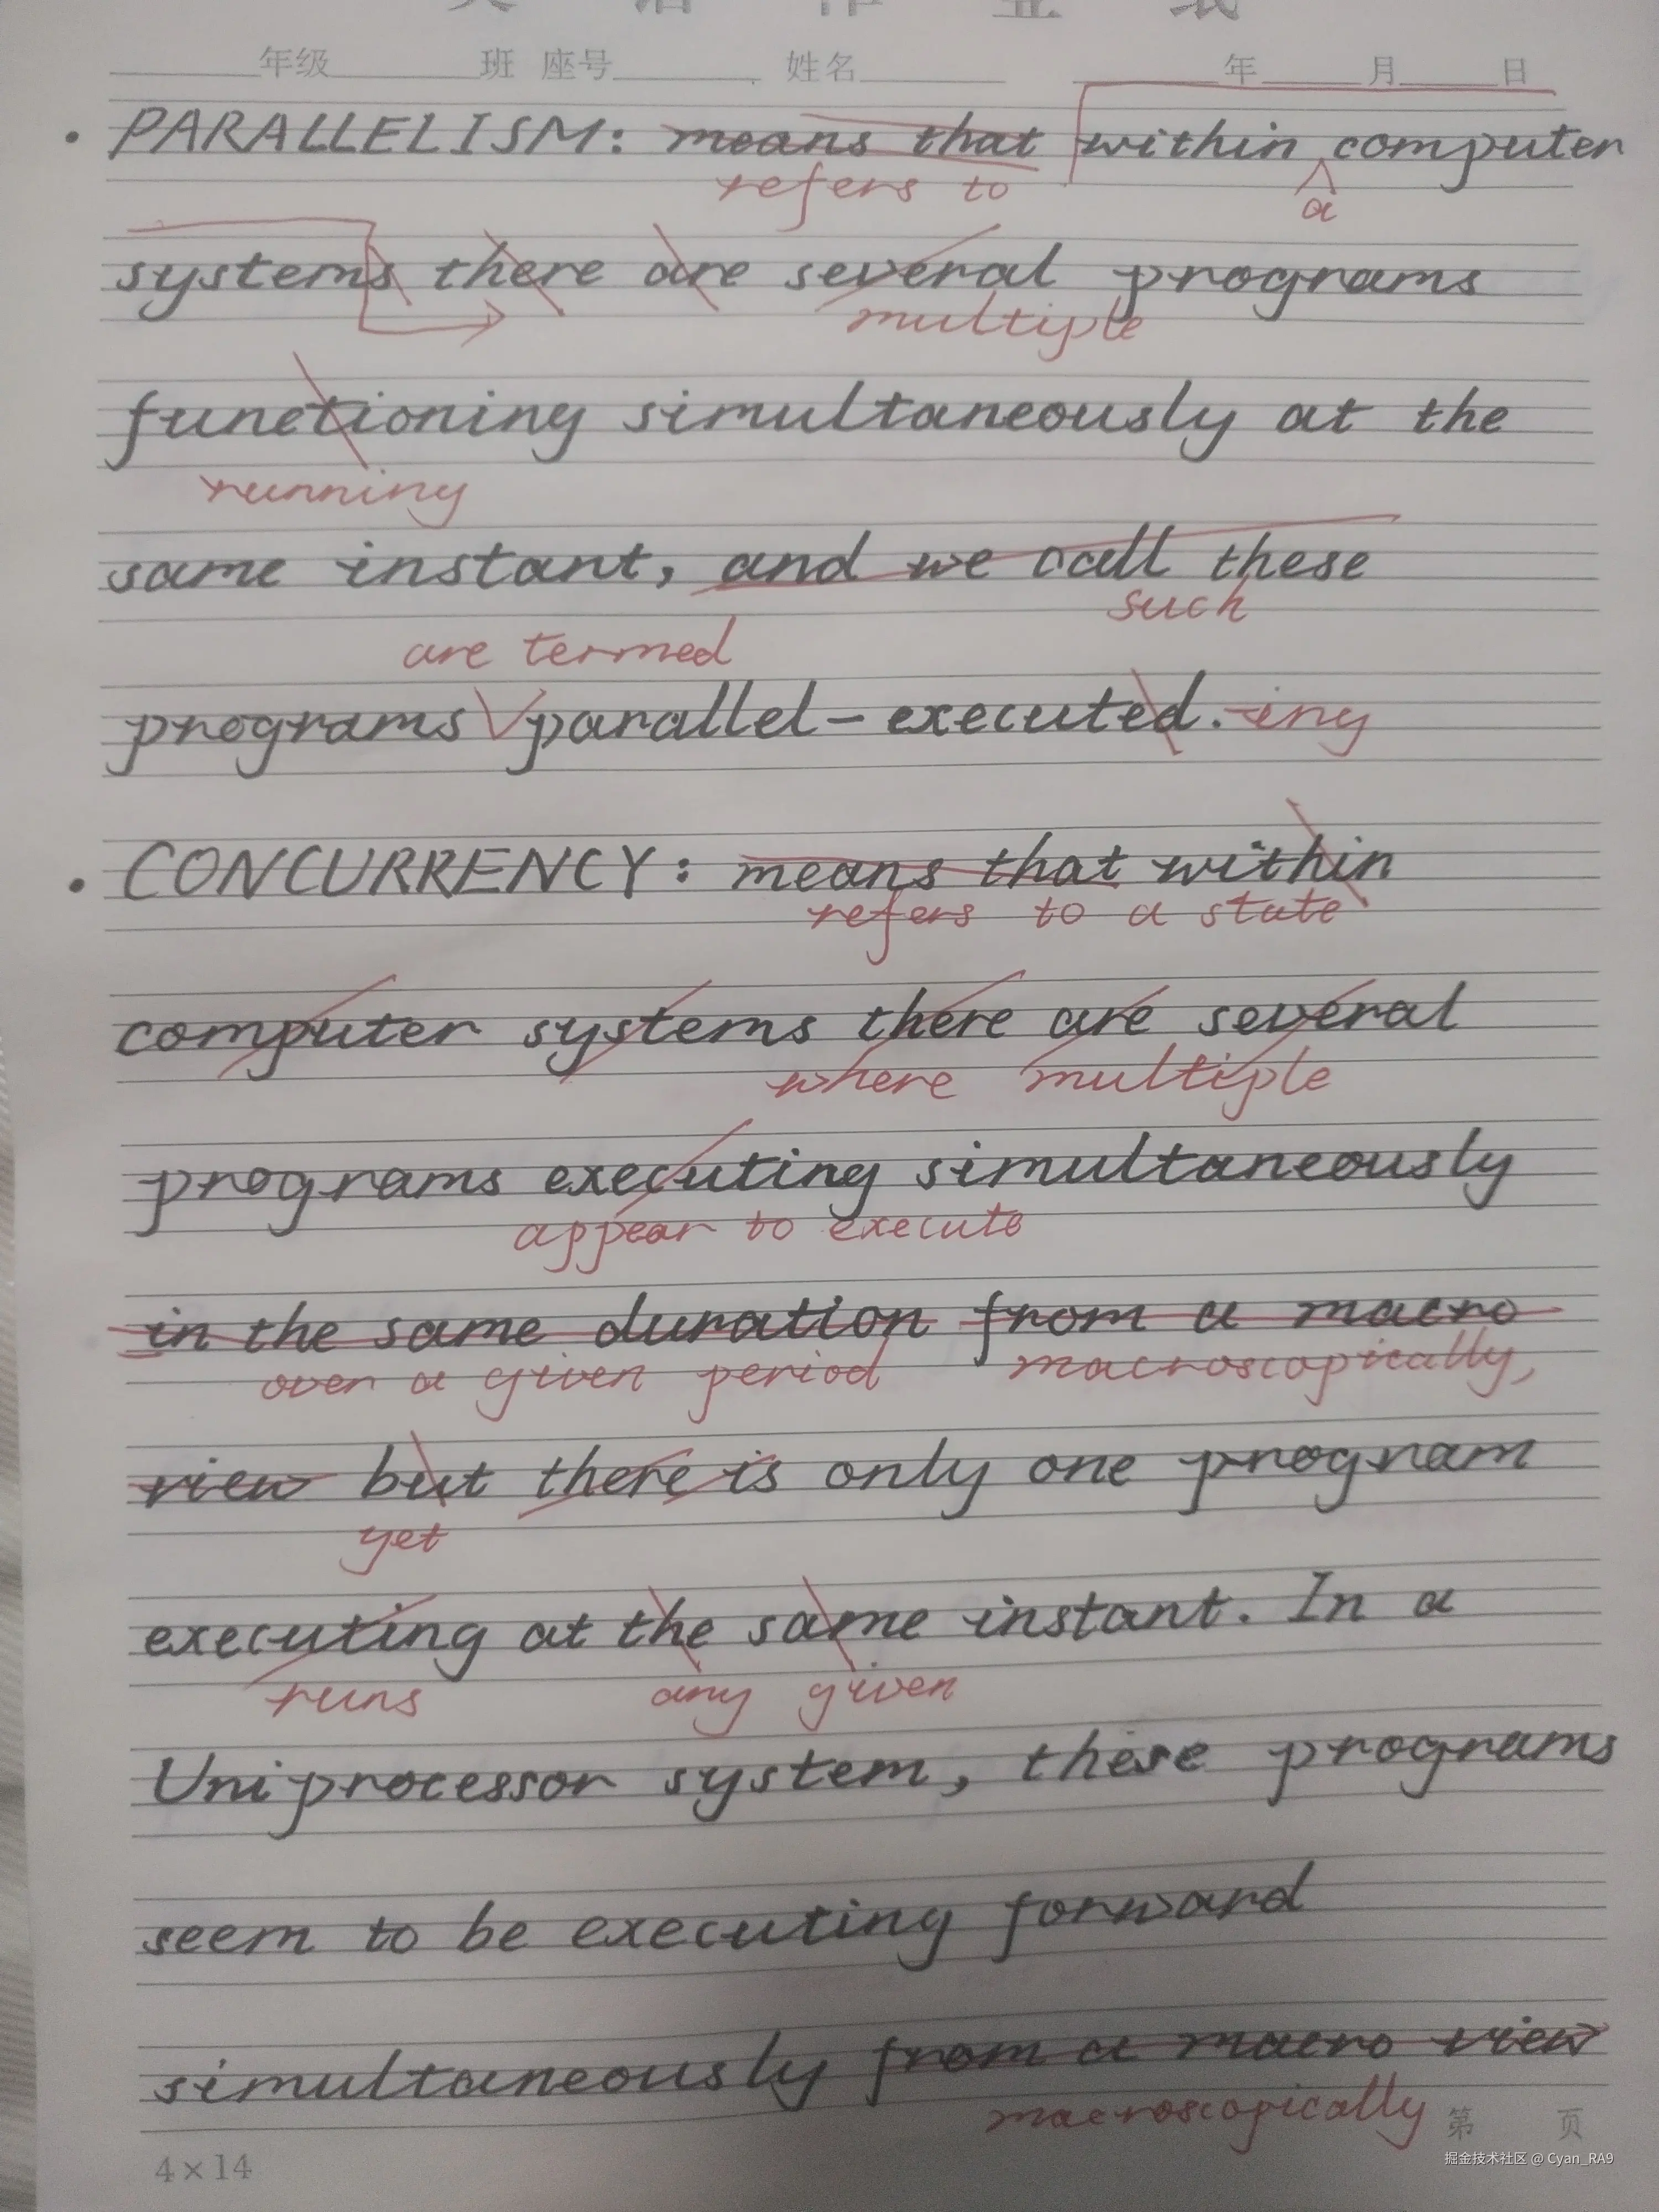 年级 班 座号 姓名 年 月 日
• PARALLELISM: means that within computer
refers to a
systems there are several programs
multiple
functioning simultaneously at the
running
same instant, and we call these
such
are termed
programs parallel-executed. -ing
• CONCURRENCY: means that within
refers to a state
computer systems there are several
where multiple
programs executing simultaneously
appear to execute
in the same duration from a macro
over a given period macroscopically,
view but there is only one program
yet
executing at the same instant. In a
runs any given
Uniprocessor system, these programs
seem to be executing forward
simultaneously from a macro view
macroscopically
第 页
4×14
掘金技术社区 @ Cyan_RA9